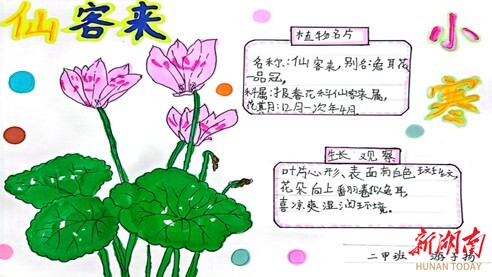 仙客来
小寒
植物名片
名称:仙客来,别名:兔耳花
一品冠。
科属:报春花科仙客来属,
花其月:12月—次年4月。
生长 观察
叶片心形、表面有白色斑纹,
花朵向上翻卷似兔耳,
喜凉爽湿润环境。
二甲班 游子扬
新湖南
HUNAN TODAY